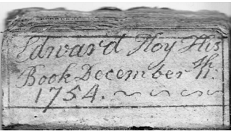 Edward Hoy His
Book December
1754.